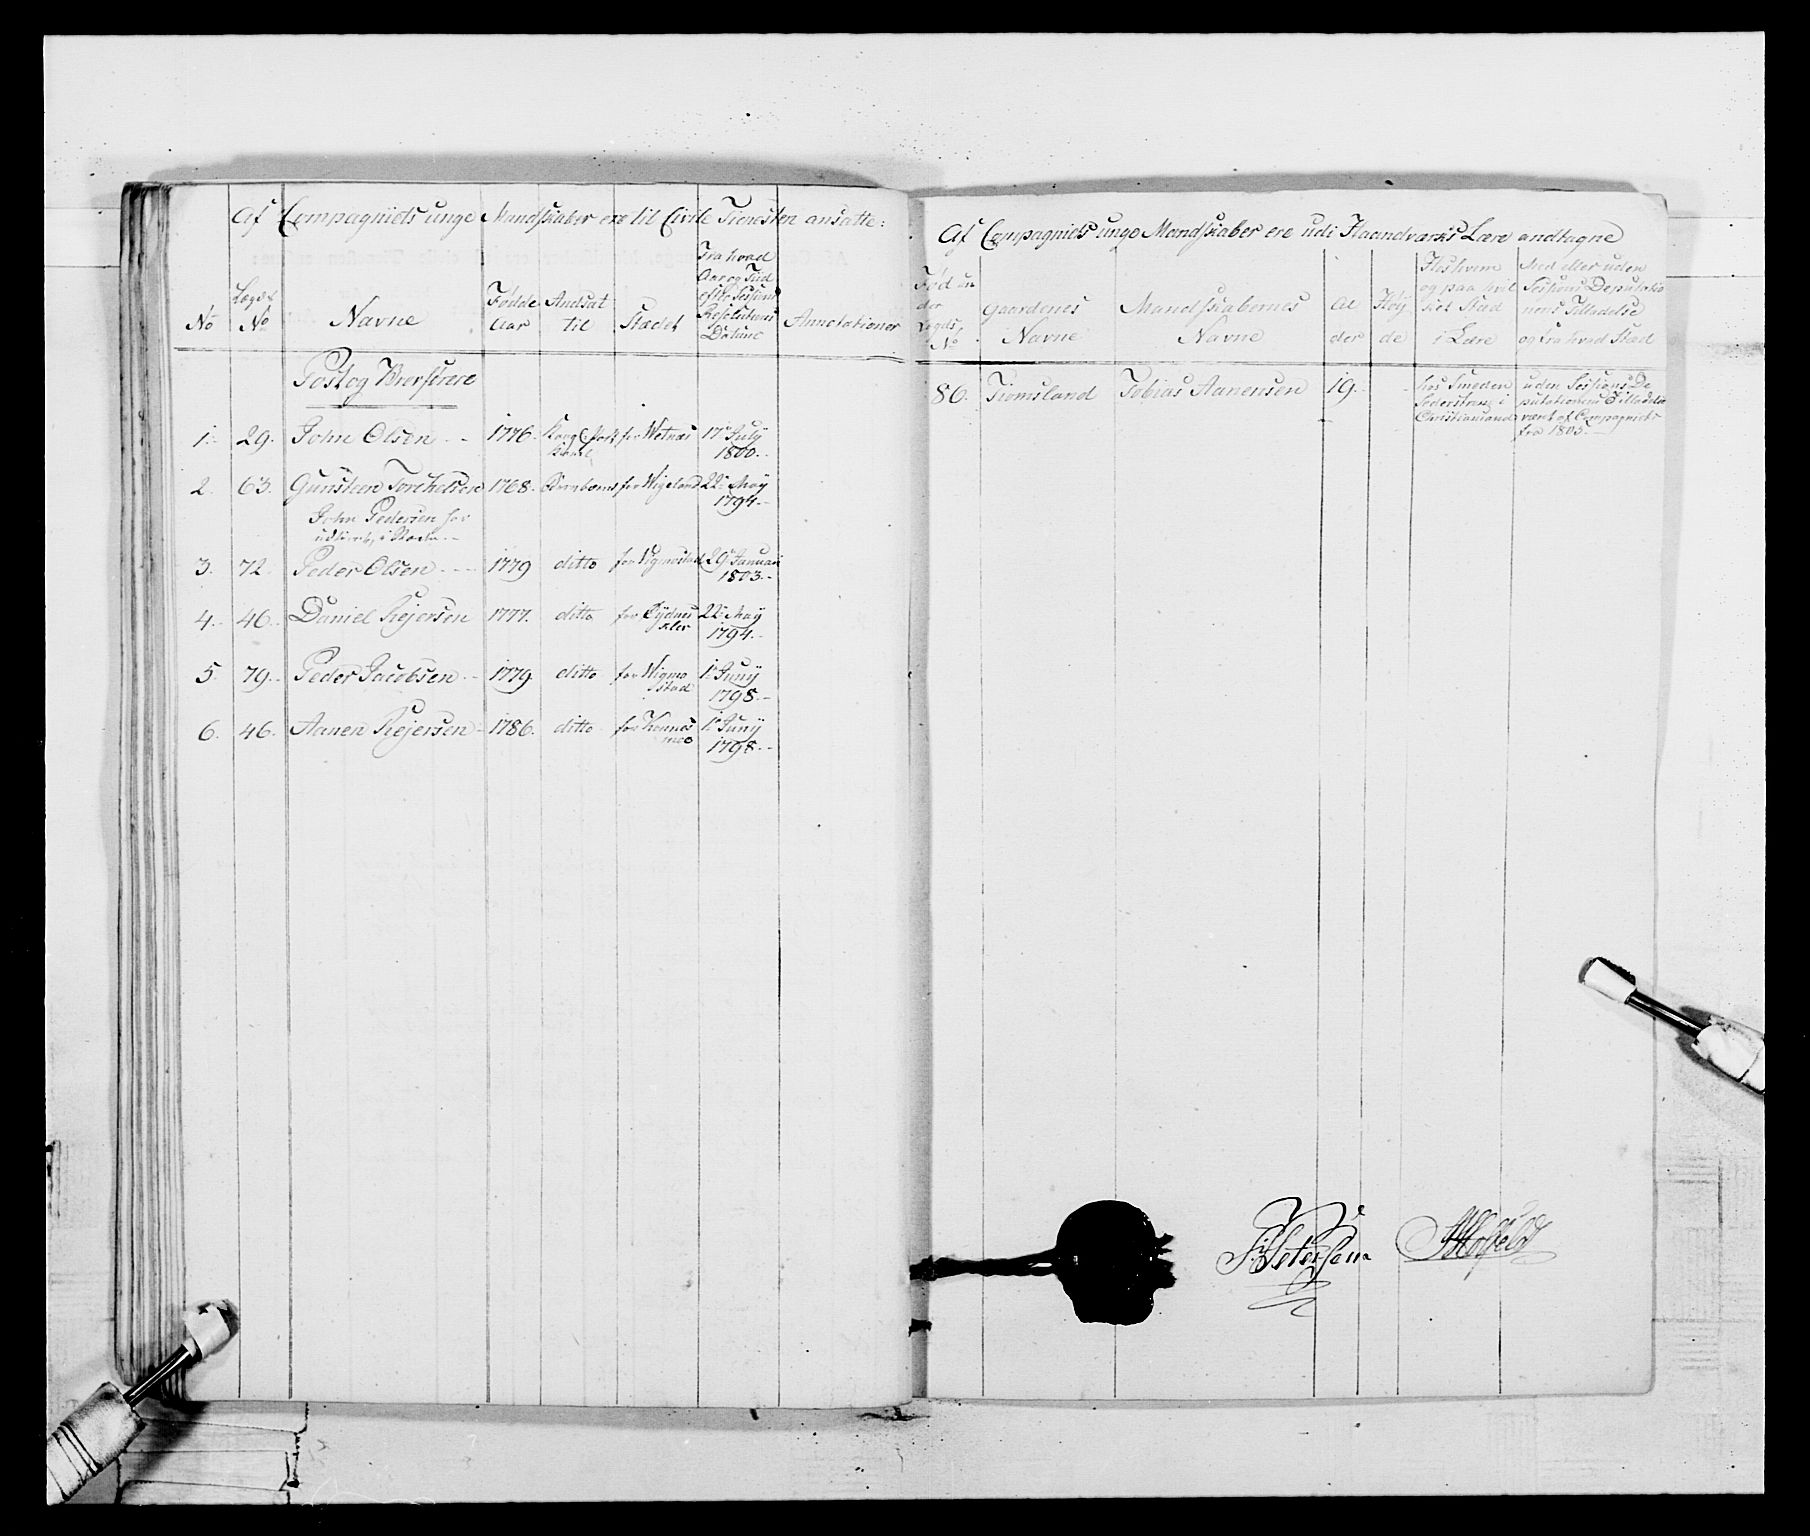 Af Compagniets unge Mandskaber ere til Civile Tienesten ansatte:
No | Lægds No | Navne | Fødde Aar | Andsat til | Stædet | Fra hvad Aar og Tiid efter Sessions Resolutions Datum | Annotationer
Post og Brevførere
1. 29. John Olsen 1776. for Wetnæs 17e July 1800.
2. 63. Gunsteen Torchelsen 1768. for Wigeland 22e May 1794.
John Pedersen for
3. 72. Peder Olsen 1779 ditto for Vigmostad 29e Januari 1803.
4. 46. Daniel Rejersen 1777. ditto for 22e May 1794.
5 79. Peder Jacobsen 1779. ditto for Wigmostad 1e Juny 1798.
6. 46. Aanen Rejersen 1786. ditto for Konnesmoe 1e Juny 1798.
Af Compagniets unge Mandskaber ere udi Haandværks Lære andtagne
Fød under Lægds No | Gaardenes Navne | Mandskabernes Navne | Alder | Høyde | Hos hvem og paa hvilket Stæd i Lære | Med eller uden Sessions Deputationens Tilladelse og fra hvad Stæd
86. Tiomsland Tobias Aanensen 19. hos Smeden i Christiansand uden Sessions Deputationens Tilladelse været af Compagniets fra 1805.
Petersen